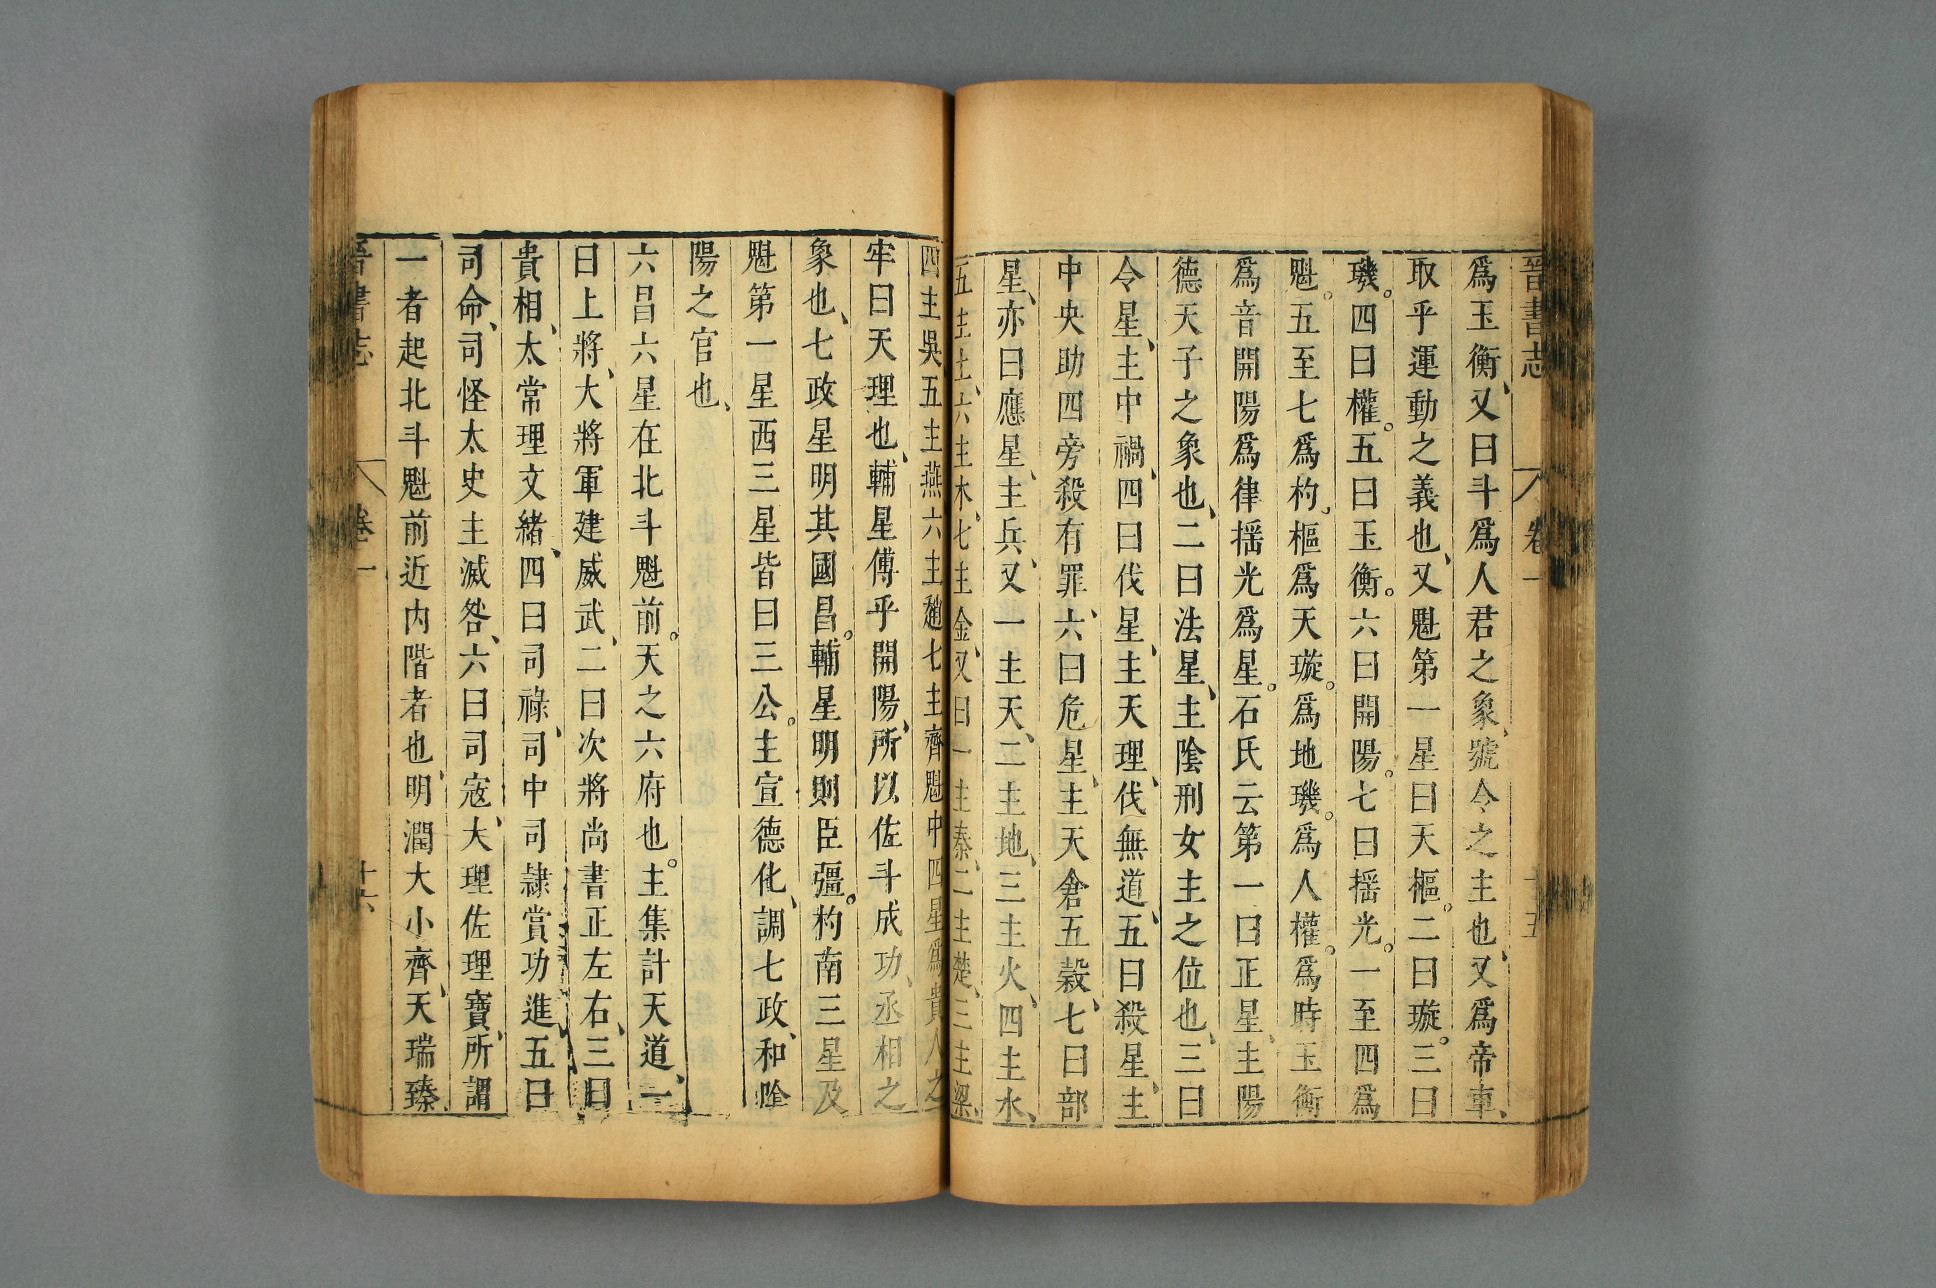 晉書志 卷一 十五
爲玉衡、又曰斗爲人君之象、號令之主也、又爲帝車、
取乎運動之義也、又魁第一星曰天樞。二曰璇。三曰
璣。四曰權。五曰玉衡。六曰開陽。七曰揺光。一至四爲
魁。五至七爲杓。樞爲天璇。爲地璣。爲人權。爲時玉衡
爲音開陽爲律揺光爲星。石氏云第一曰正星、主陽
德天子之象也、二曰法星、主陰刑女主之位也、三曰
令星、主中禍、四曰伐星、主天理、伐無道、五曰殺星、主
中央助四旁殺有罪、六曰危星、主天倉五穀、七曰部
星、亦曰應星、主兵、又一主天、二主地、三主火、四主水、
五主土、六主木、七主金、又曰一主秦、二主楚、三主梁、
四主吳五主燕六主趙七主齊魁中四星爲貴人之
牢曰天理也、輔星傅乎開陽、所以佐斗成功、丞相之
象也、七政星明其國昌。輔星明則臣彊。杓南三星及
魁第一星西三星皆曰三公。主宣德化、調七政、和陰
陽之官也、
六昌六星在北斗魁前。天之六府也。主集計天道、一
曰上將、大將軍建威武、二曰次將尚書正左右、三曰
貴相、太常理文緒、四曰司祿、司中司隷賞功進、五曰
司命、司怪太史主滅咎、六曰司寇、大理佐理寶、所謂
一者起北斗魁前近内階者也、明潤大小齊、天瑞臻
晉書志 卷一 十六